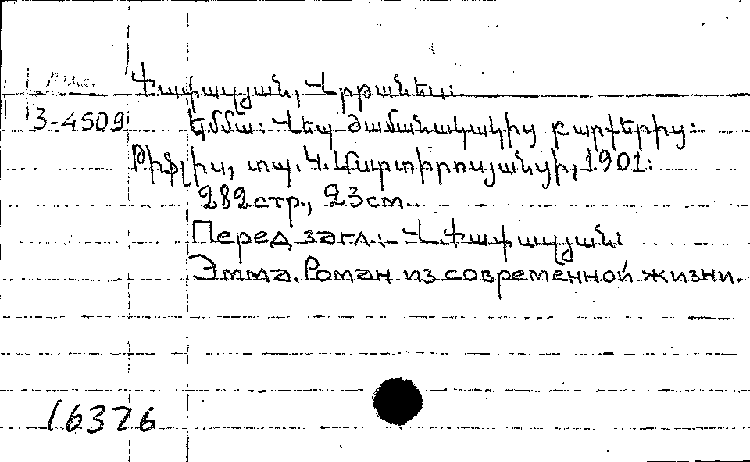 Փափազյան, Վրթանես։
3-4509 Էմմա։ Վեպ ժամանակակից բարքերից։
Թիֆլիս, տպ. Կ. Մարտիրոսյանցի, 1901։
282 стр., 23 см.
Перед загл.: Վ. Փափազյան։
Эмма. Роман из современной жизни.
16376